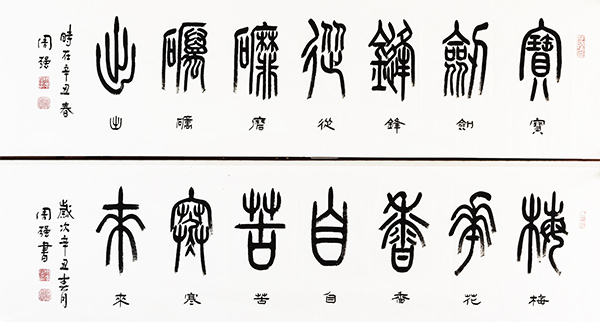 寶劍鋒從磨礪出
寶劍鋒從磨礪出
時在辛丑春
周强
梅花香自苦寒來
梅花香自苦寒來
歲次辛丑春月
周强書